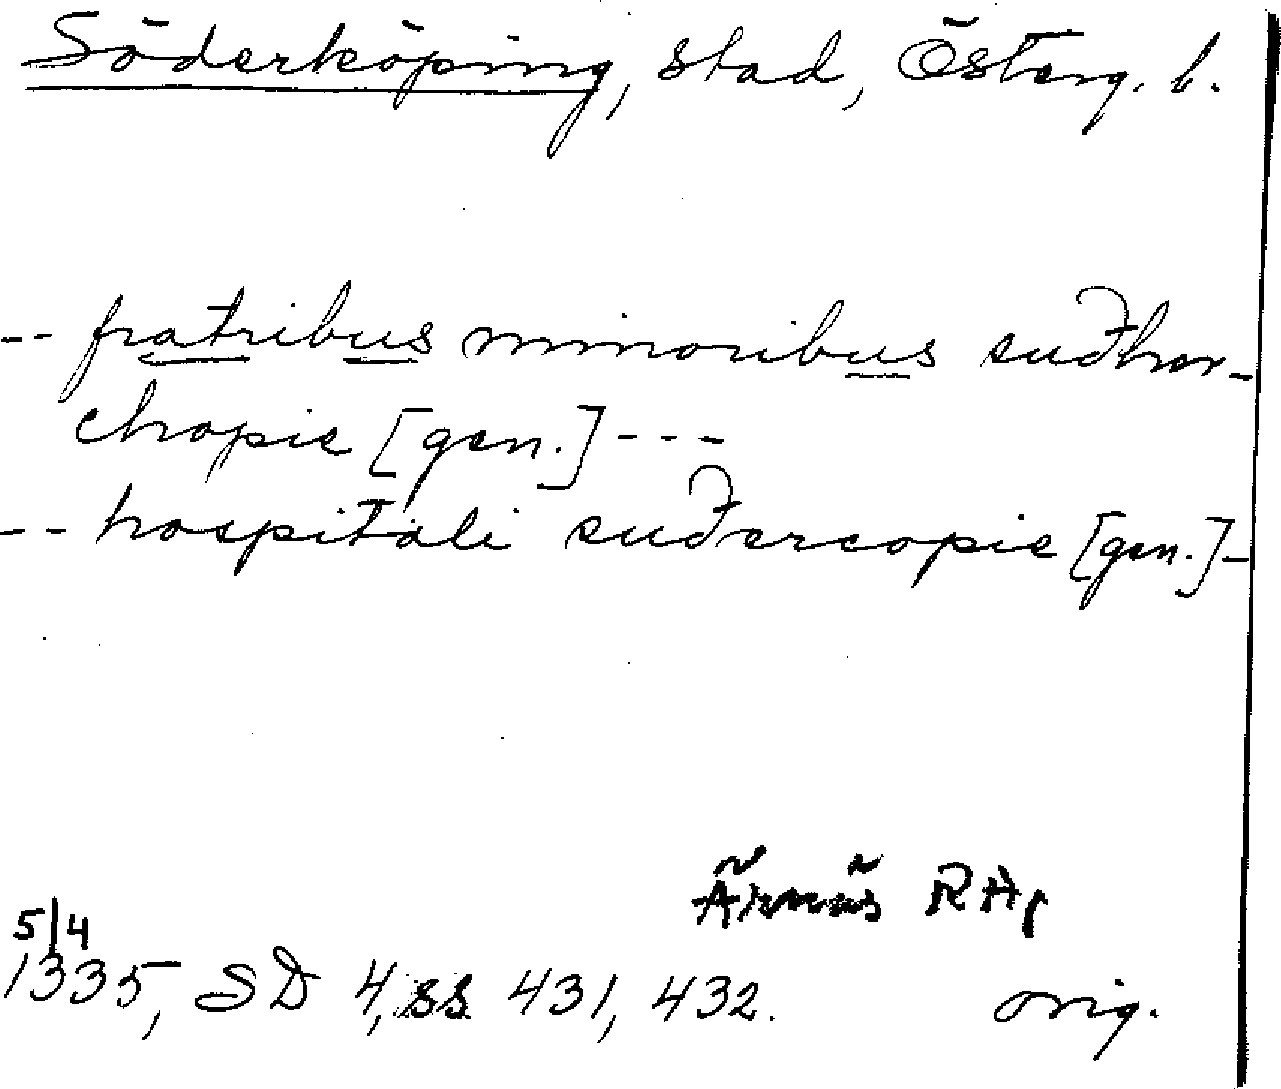 Söderköping, stad, Österg. l.
-- fratribus minoribus suðhor-
chopie [gen.] ---
-- hospitali suðercopie [gen.] -
Ärnäs RAp
5/4
1335, SD 4, ss. 431, 432. orig.